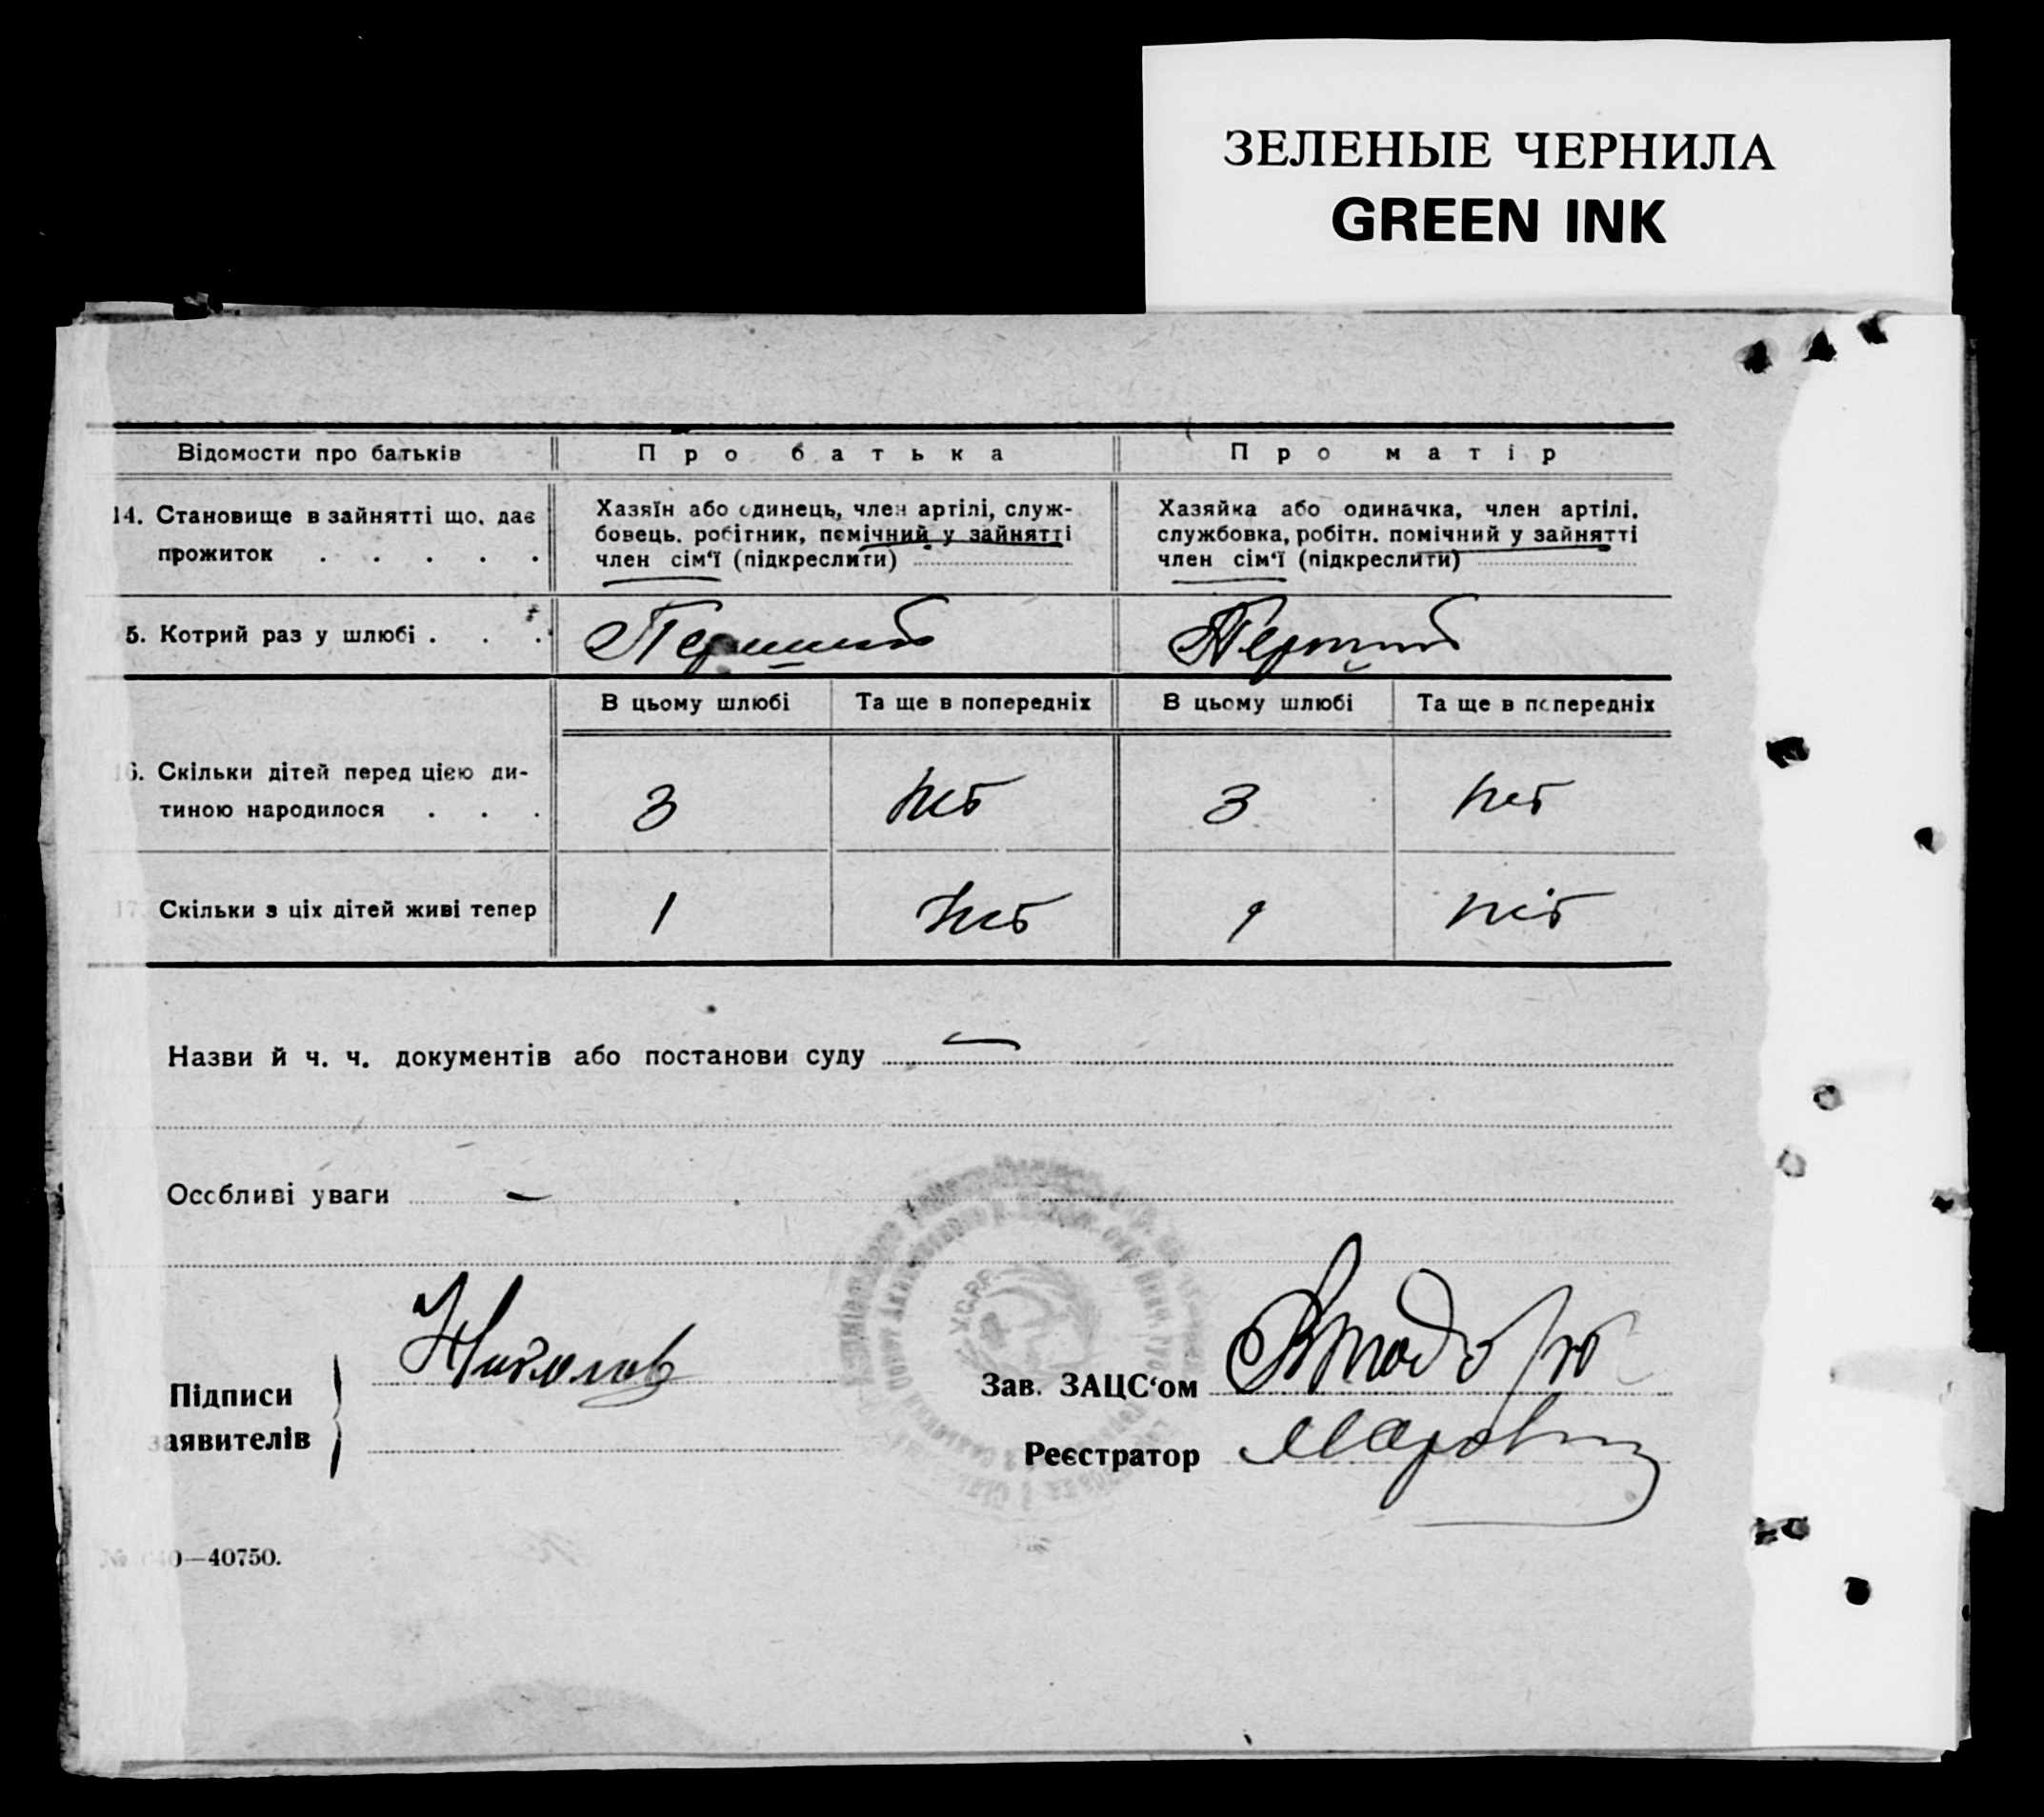 ЗЕЛЕНЫЕ ЧЕРНИЛА
GREEN INK
Відомости про батьків Про батька Про матір
14. Становище в зайнятті що, дає прожиток . . . . .
Хазяїн або одинець, член артілі, служ-
бовець. робітник, помічний у зайнятті
член сім‘ї (підкреслити)
Хазяйка або одиначка, член артілі.
службовка, робітн. помічний у зайнятті
член сім‘ї (підкреслити)
5. Котрий раз у шлюбі . . . Перший Перший
В цьому шлюбі Та ще в попередніх В цьому шлюбі Та ще в попередніх
6. Скільки дітей перед цією ди-
тиною народилося . . . 3 нет 3 нет
17. Скільки з ціх дітей живі тепер 1 нет 1 ніт
Назви й ч. ч. документів або постанови суду —
Особливі уваги —
Підписи
заявителів
Николов
Зав. ЗАЦС‘ом
Реєстратор
У.С.Р.Р.
0—40750.